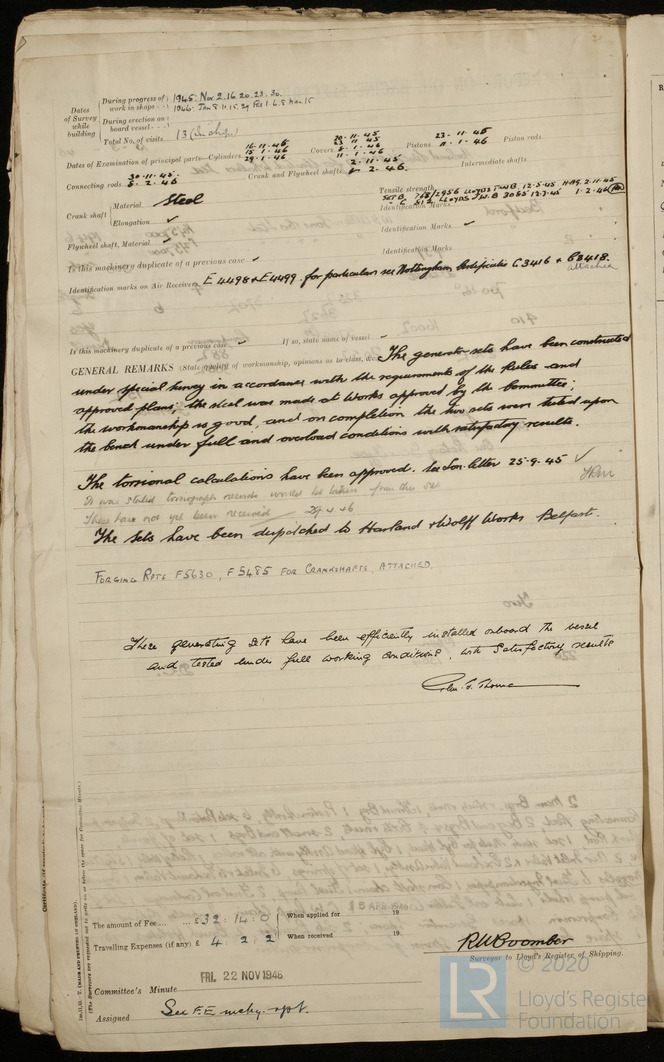 Dates of Survey while building
During progress of work in shops - - 1945: Nov 2.16.20.23.30.
1946: Jan 8.11.15.29 Feb 1.6.8 Mar 15
During erection on board vessel - - -
Total No. of visits 13 (In shop)
Dates of Examination of principal parts—Cylinders 16-11-45. 15-1-46 29-1-46 Covers 20-11-45 23-11-45 11-1-46 Pistons 23-11-45 11-1-46 Piston rods
Connecting rods 30-11-45. 8-2-46 Crank and Flywheel shafts 2-11-45 8-2-46 Intermediate shafts
Crank shaft Material Steel Tensile strength
Elongation ✓ Identification Marks
Flywheel shaft, Material ✓ Identification Marks ✓
Identification Marks
Is this machinery duplicate of a previous case ✓
Identification marks on Air Receivers E4498 & E4499. for particulars see Nottingham Certificates C3416 & C3418.
attached
Is this machinery duplicate of a previous case ✓ If so, state name of vessel ✓
GENERAL REMARKS (State quality of workmanship, opinions as to class, &c. The generator sets have been constructed
under special survey in accordance with the requirements of the Rules and
approved plans; the steel was made at Works approved by the Committee;
the workmanship is good, and on completion the two sets were tested upon
the bench under full and overload conditions with satisfactory results.
The torsional calculations have been approved. See Lon. letter 25-9-45 ✓
It was stated torsiograph records would be taken from this set
These have not yet been received
The sets have been dispatched to Harland & Wolff Works Belfast.
FORGING RPTS F5630, F5485 FOR CRANKSHAFTS, ATTACHED.
These generating sets have been efficiently installed onboard the vessel
and tested under full working conditions, with satisfactory results
15 APR 1946
The amount of Fee ... £ 32 : 14 : 0 When applied for 19
Travelling Expenses (if any) £ 4 : 2 : 2 When received 19
RW Coomber
Surveyor to Lloyd's Register of Shipping.
FRI. 22 NOV 1946
Committee's Minute
Assigned See F.E. mchy. rpt.
© 2020
LR
Lloyd's Register
Foundation